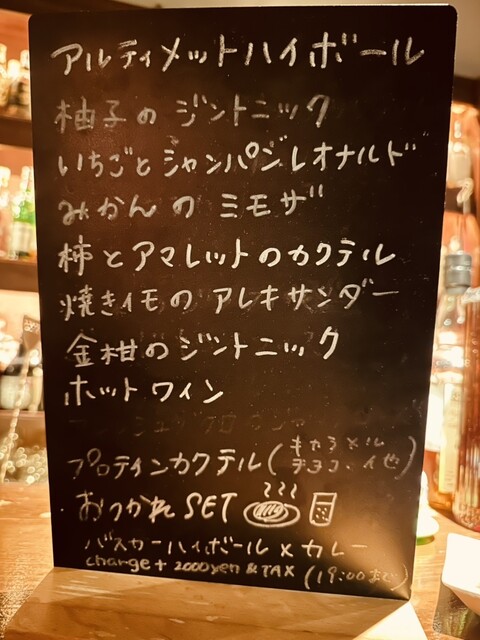 アルティメットハイボール
柚子のジントニック
いちごとシャンパンジレオナルド
みかんのミモザ
柿とアマレットのカクテル
焼きイモのアレキサンダー
金柑のジントニック
ホットワイン
プロテインカクテル(キャラメル
チョコ、イモ)
おつかれSET
バスカーハイボール×カレー
charge + 2000yen & TAX (19:00まで)